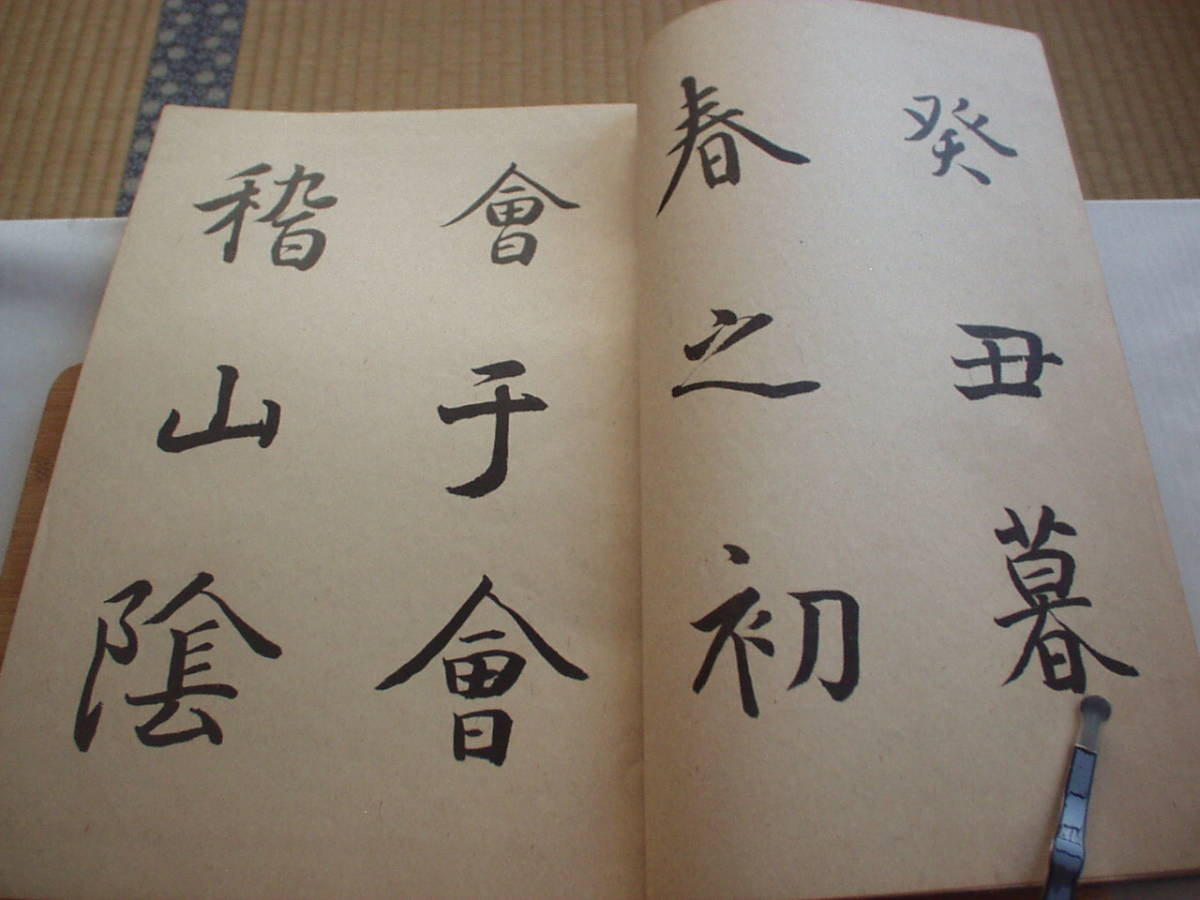 癸丑暮
春之初
會于會
稽山陰